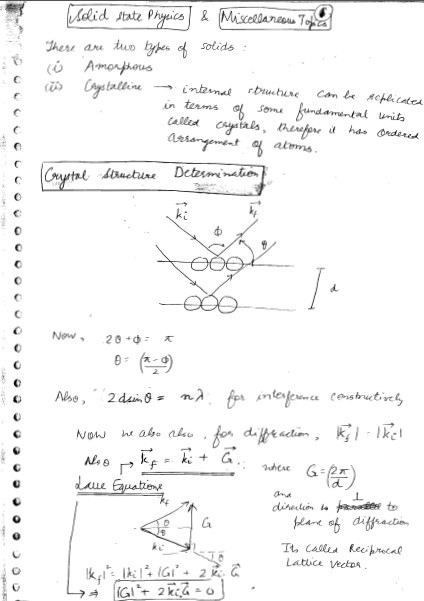 Solid State Physics & Miscellaneous Topics
There are two types of solids :
(i) Amorphous
(ii) Crystalline → internal structure can be replicated
in terms of some fundamental units
called crystals, therefore it has ordered
arrangement of atoms.
Crystal Structure Determination
k⃗i k⃗f
ϕ θ
d
Now, 2θ + ϕ = π
θ = (π - ϕ)/2
Also, 2dsinθ = nλ, for interference constructively
Now we also also, for diffraction, |k⃗f| = |k⃗i|
Also k⃗f = k⃗i + G⃗ : where G = (2π/d)
Laue Equations
and
direction is ⊥ to
plane of diffraction
kf
θ G
θ
ki
θ
Its called Reciprocal
Lattice Vector.
|kf|² = |ki|² + |G|² + 2 k⃗i.G⃗
⇒ |G|² + 2k⃗i.G⃗ = 0